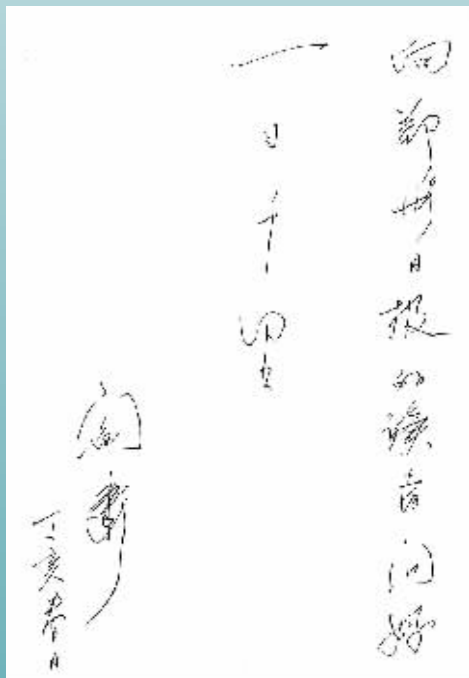 向郑州日报的读者问好
一日千里
丁亥春月